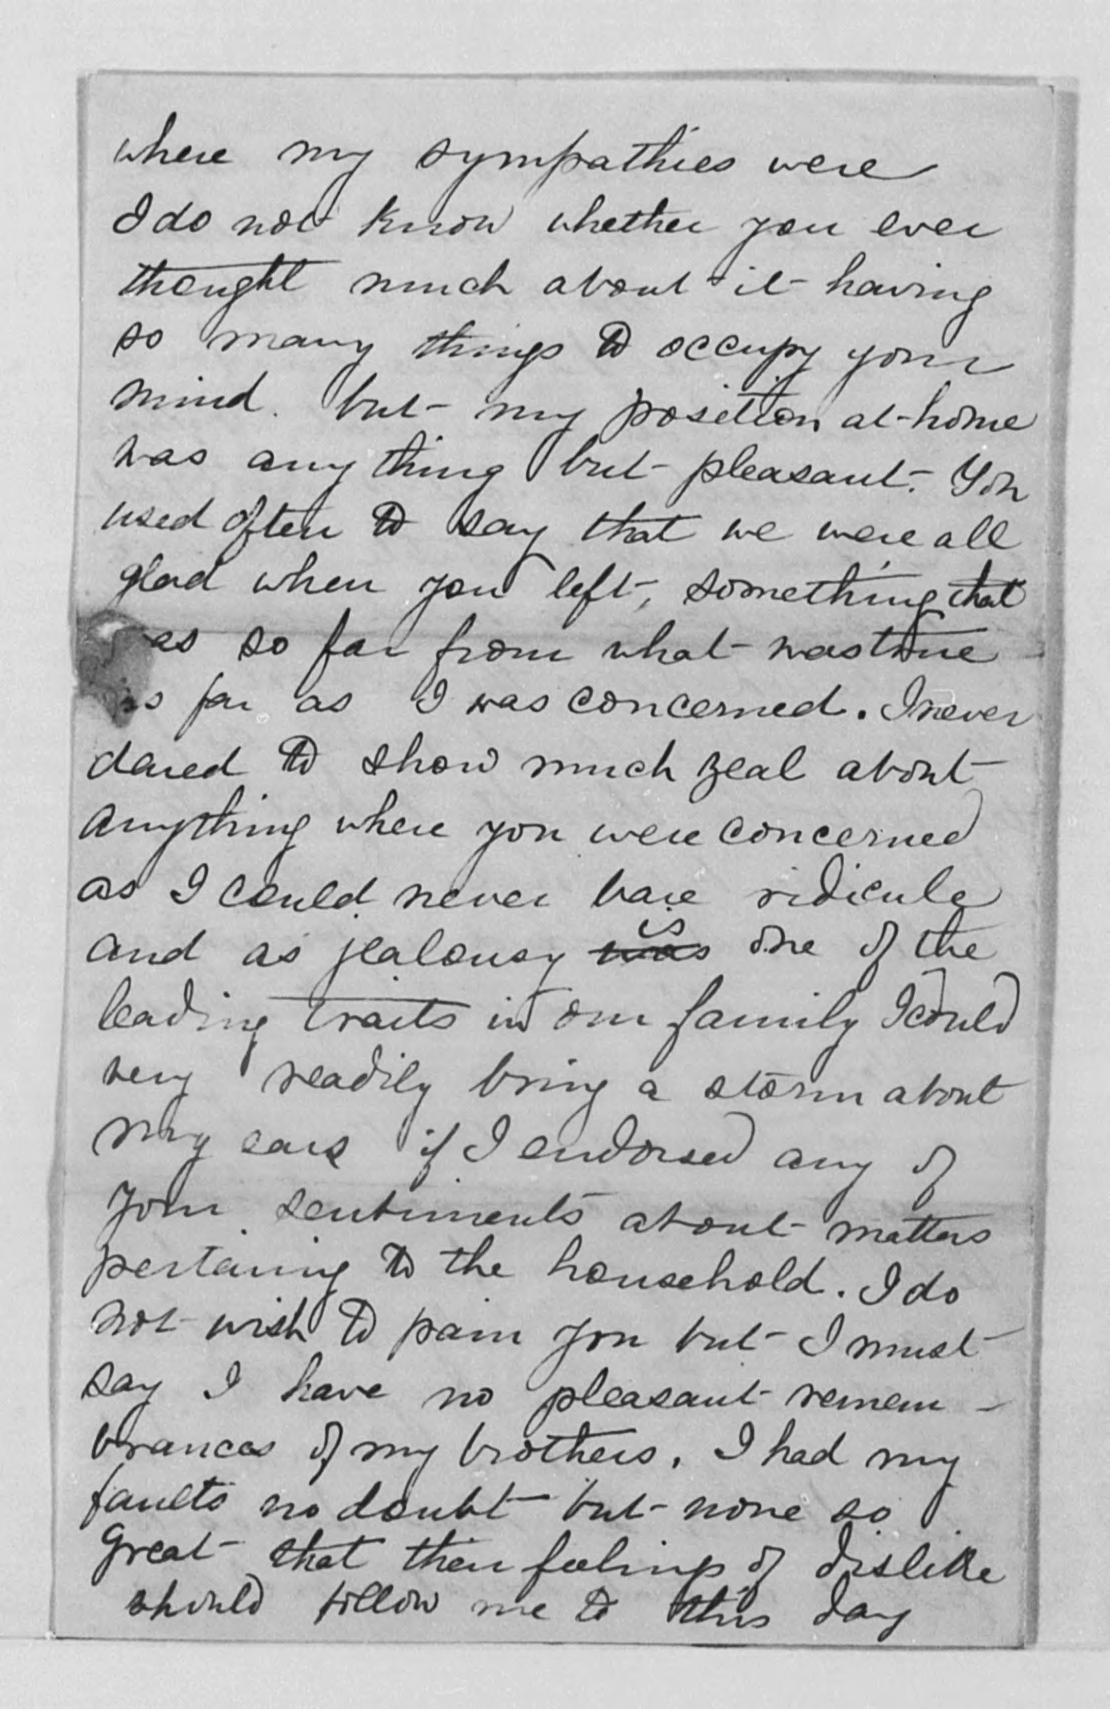 where my sympathies were
I do not know whether you ever
thought much about it having
so many things to occupy your
mind. but my position at home
was any thing but pleasant. You
used often to say that we were all
glad when you left, something that
was so far from what was true
as far as I was concerned. I never
dared to show much zeal about
anything where you were concerned
as I could never bare ridicule
and as jealousy was is one of the
leading traits in our family I could
very readily bring a storm about
my ears if I endorsed any of
your sentiments about matters
pertaining to the household. I do
not wish to pain you but I must
say I have no pleasant remem-
brances of my brothers. I had my
faults no doubt but none so
great that their feelings of dislike
should follow me to this day